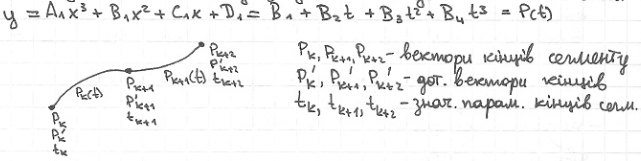 y = A₁x³ + B₁x² + C₁x + D₁ = B₁ + B₂t + B₃t² + B₄t³ = P(t)
P_k(t)
P_k
P'_k
t_k
P_{k+1}
P'_{k+1}
t_{k+1}
P_{k+1}(t)
P_{k+2}
P'_{k+2}
t_{k+2}
P_k, P_{k+1}, P_{k+2} - вектори кінців сегменту
P'_k, P'_{k+1}, P'_{k+2} - дот. вектори кінців
t_k, t_{k+1}, t_{k+2} - знач. парам. кінців сегм.